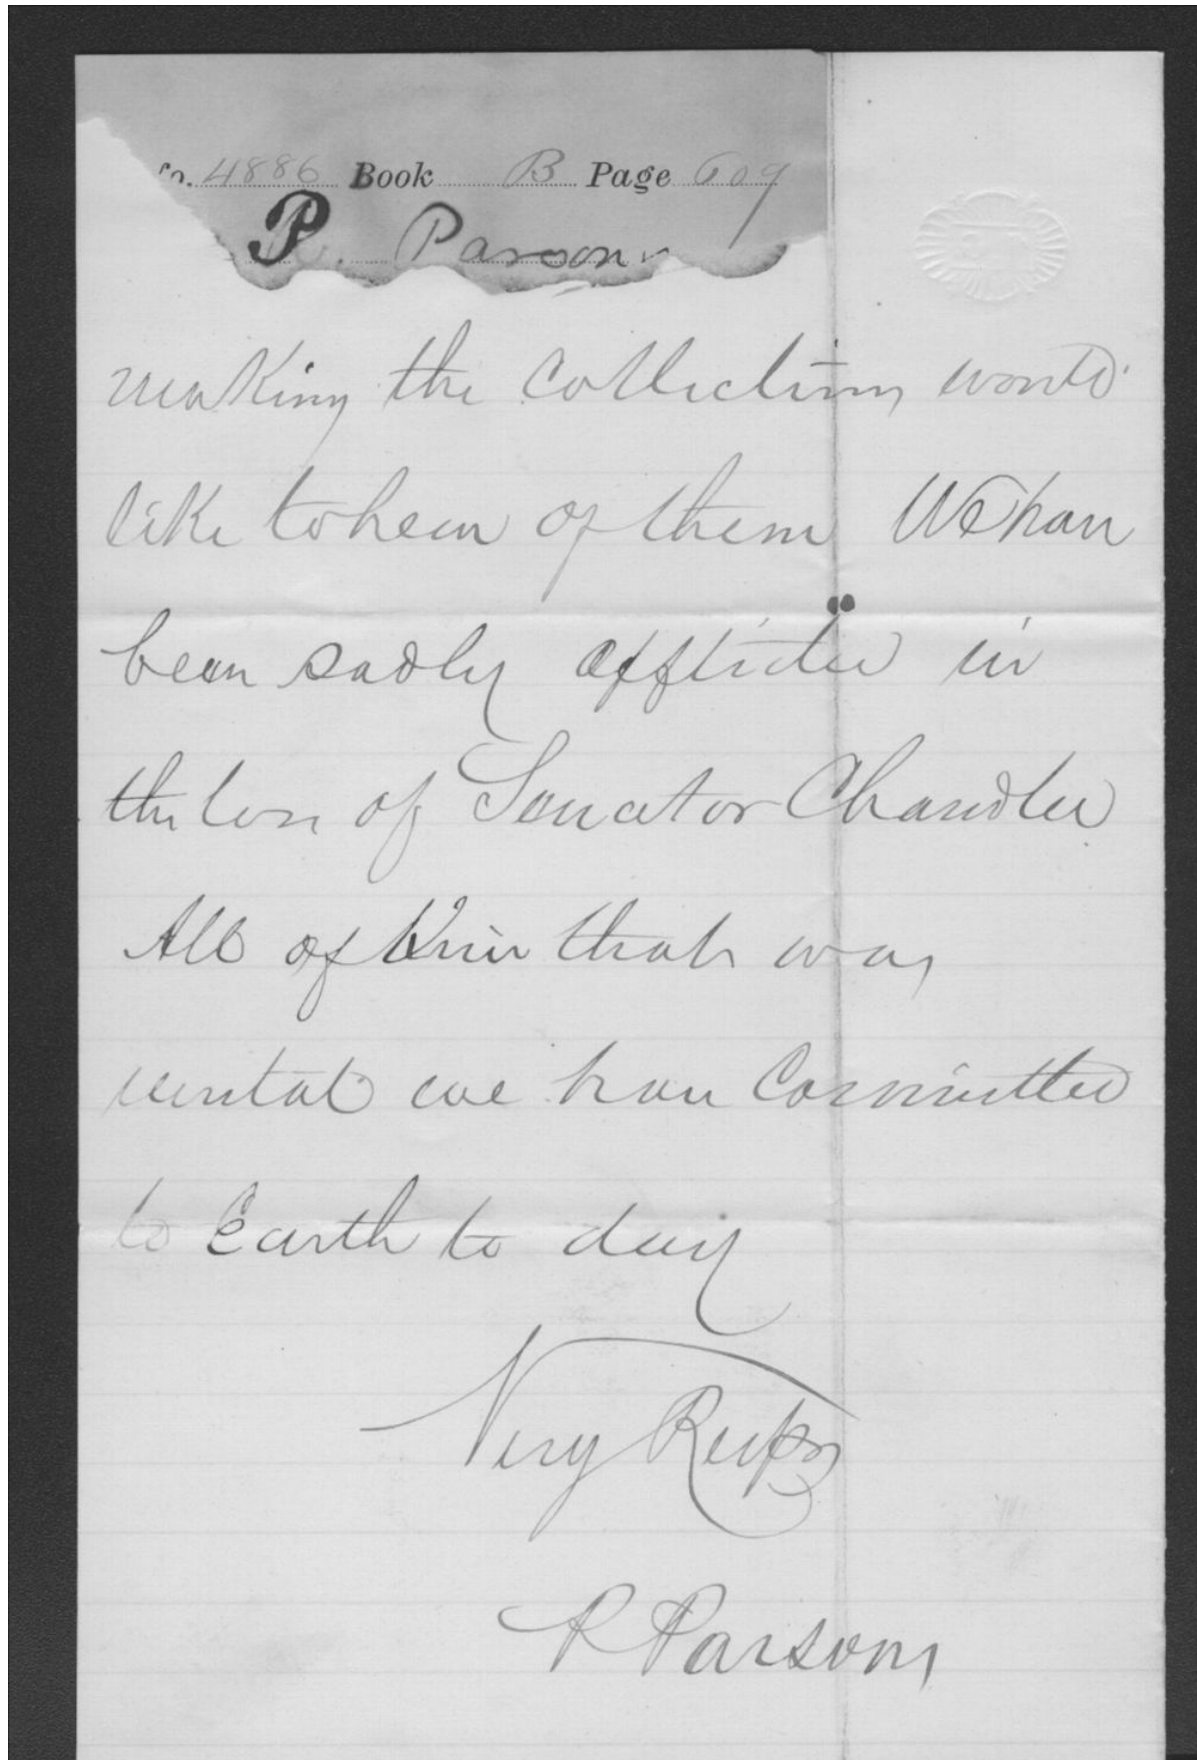 o. 4886 Book B Page 609
P. Parsons
making the collections would
like to hear of them We have
been sadly afflicted in
the loss of Senator Chandler
All of him that was
mortal we have Committed
to Earth to day
Very Respy
R Parsons